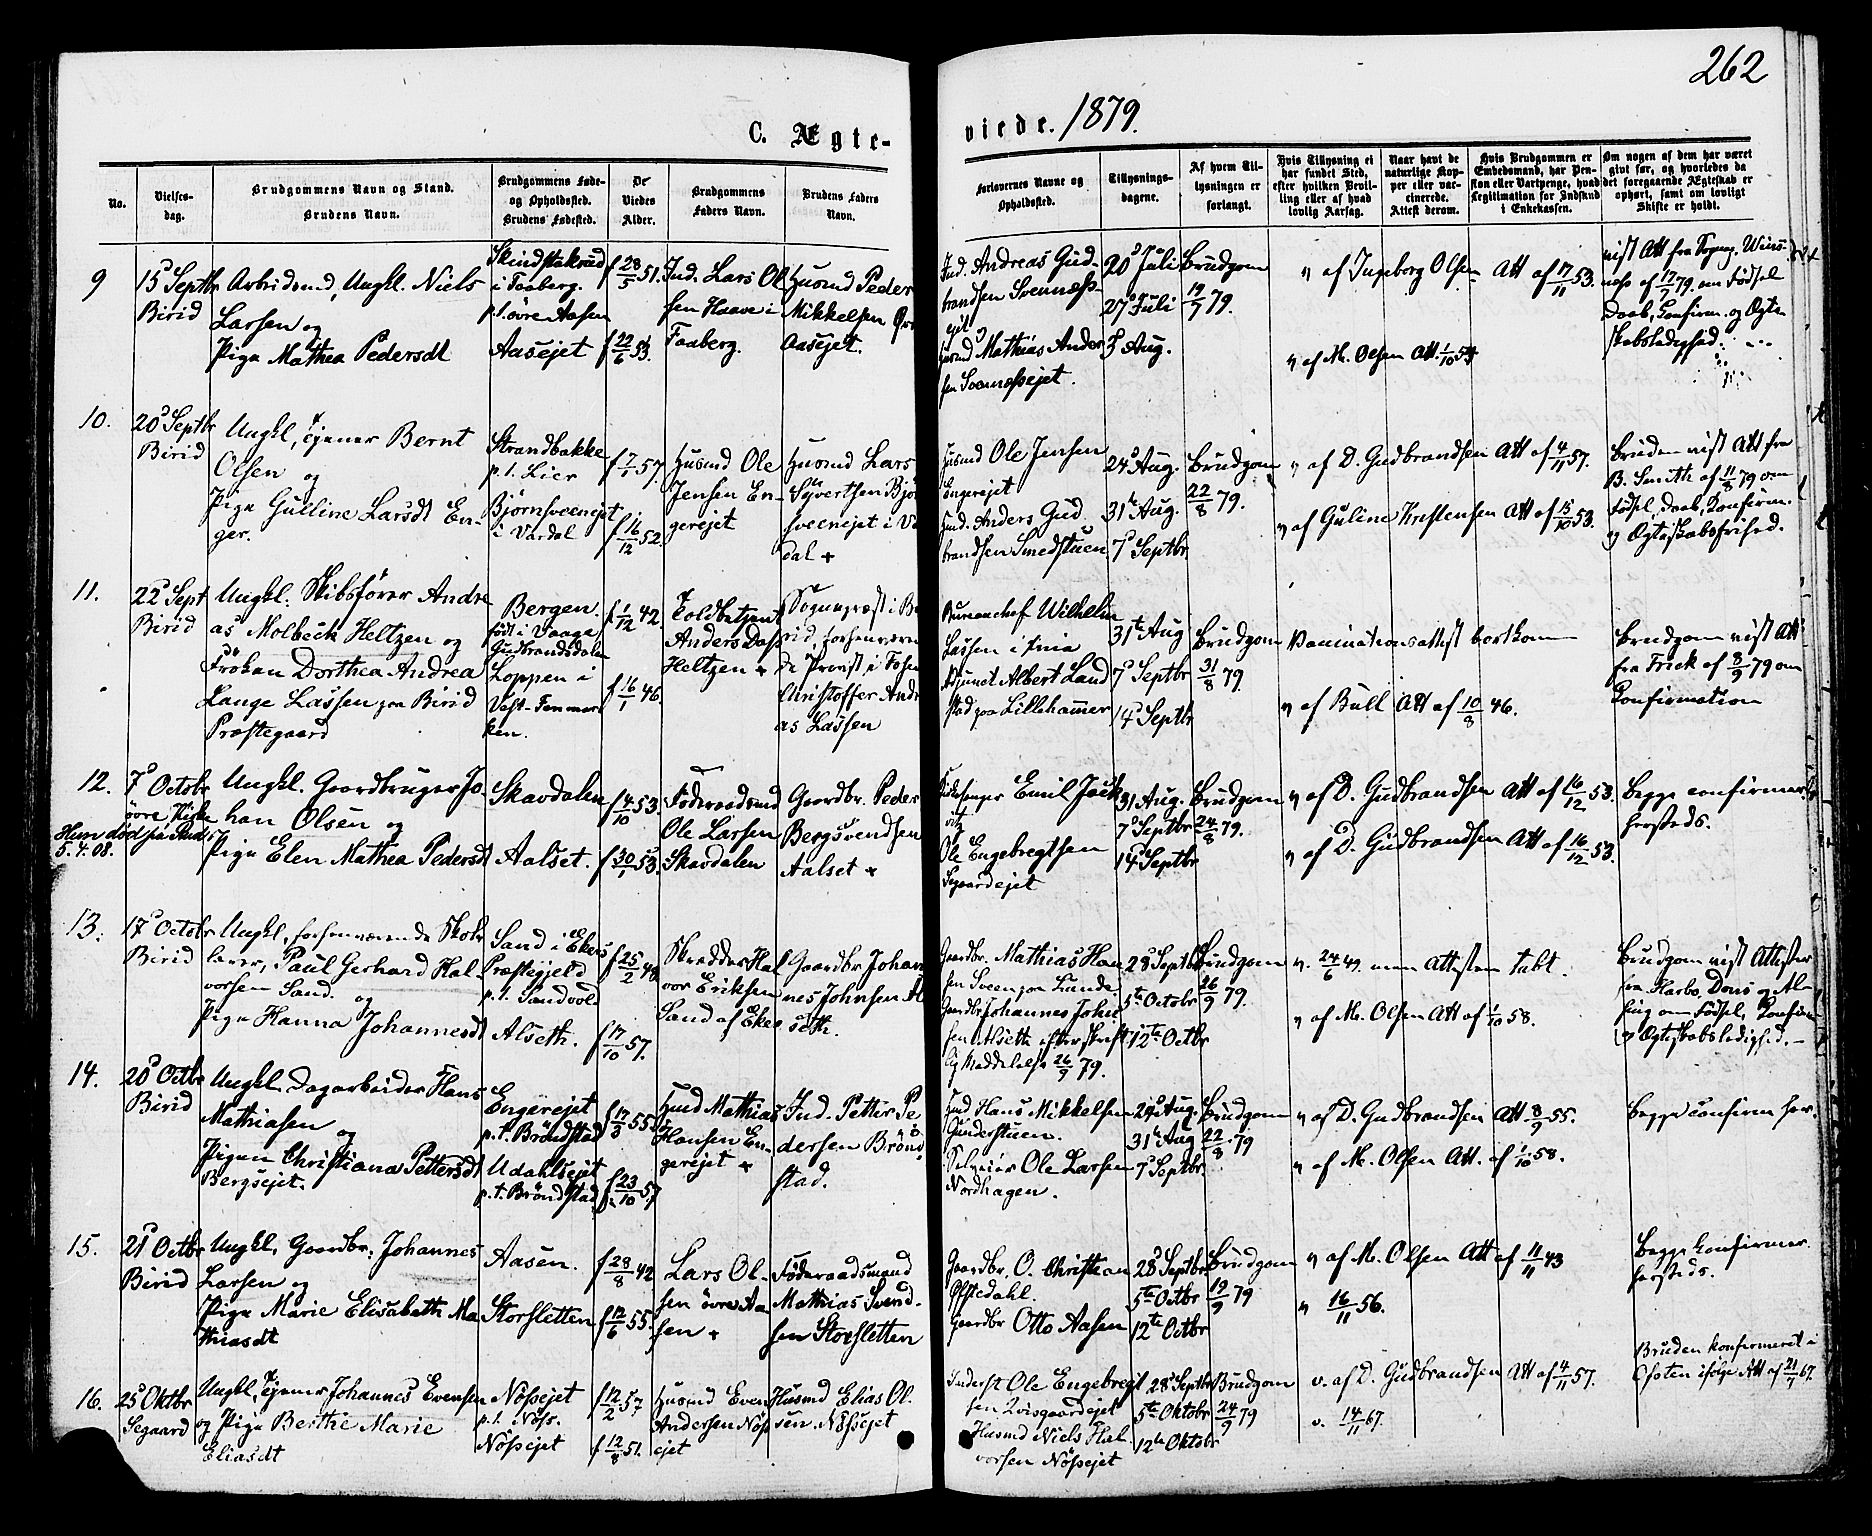 262
C. Ægte-
viede. 1879.
No.
Vielses-
dag.
Brudgommens Navn og Stand.
Brudens Navn.
Brudgommens Føde-
og Opholdssted.
Brudens Fødested.
De
Viedes
Alder.
Brudgommens
Faders Navn.
Brudens Faders
Navn.
Forlovernes Navne og
Opholdssted.
Tillysnings-
dagene.
Af hvem Til-
lysningen er
forlangt.
Hvis Tillysning ei
har fundet Sted,
efter hvilken Bevil-
ling eller af hvad
lovlig Aarsag.
Naar havt de
naturlige Kop-
per eller vac-
cinerede.
Attest derom.
Hvis Brudgommen er
Embedsmand, har Pen-
sion eller Vartpenge, hvad
Legitimation for Indskud
i Enkekassen.
Om nogen af dem har været
givt før, og hvorledes da
det foregaaende Ægteskab er
ophørt, samt om lovligt
Skifte er holdt.
9
15 Septbr
Birid
Arbeidsmd, Ungkl. Niels
Larsen og
Pige Mathea Pedersdt
Skindstakrud
i Faaberg.
p.t. øvre Aasen
Aasejet
f 28/5 51.
f 22/6 53.
Ind. Lars Ol
sen Haave i
Faaberg.
Husmd Peder
Mikkelsen Øvr
Aasejet.
Ind. Andreas Gud-
brandsen Svennæss-
ejet
Husmd Mathias Ander
sen Svennæssejet.
20 Juli
27 Juli
3 Aug.
Brudgom
19/7 79.
v af Ingeborg Olsen Att af 17/11 53.
v af M. Olsen Att. 1/10 54
vist Att fra Sognepr. Wiins-
næs af 17/7 79. om Fødsel
Daab, Confirm. og Ægte
skabsledighed.
10.
20 Septbr
Birid
Ungkl, Tjener Bernt
Olsen og
Pige Gulline Larsdt En-
ger.
Strandbakke
p.t. Lier
Bjørnsveenejet
i Vardal
f 7/1 57.
f 16/12 52.
Husmd Ole
Jensen En-
gerejet
Husmd Lars
Syvertsen Bjør
sveenejet i Va
dal +
Husmd Ole Jensen
Engerejet
Ind. Anders Gud
brandsen Smedstuen
24 Aug.
31te Aug.
7 Septbr
Brudgom
22/8 79.
v af D. Gudbrandsen Att af 4/11 57.
v af Guline Kristensen Att af 15/10 53.
Bruden vist Att fra
B. Smith af 11/8 79 om
Fødsel, Daab, Konfirm.
og Ægteskabsfrihed.
11.
22 Sept
Birid
Ungkl. Skibsfører Andre
as Molbeck Heltzen og
Frøken Dorthea Andrea
Lange Lassen paa Birid
Præstegaard
Bergen.
født i Vaage
Gudbrandsdalen
Loppen i
Vest-Finmar
ken.
f 1/12 42
f 16/1 46.
Toldbetjent
Anders Dass
Heltzen +
Sogneprest i Bi
rid, forhenværen
de Provst i Fosen
Christoffer Andr
as Lassen
Bureauchef Wilhelm
Lassen i Xnia
Adjunct Albert Land
stad paa Lillehammer
31te Aug
7 Septbr
14 Septbr
Brudgom
31/8 79.
Vaccinationsattest bortkom
v af Bull Att af 10/8 46.
Brudgom vist Att
fra Frick af 8/9 79 om
Confirmation
12.
7 Octobr
øvre Kirke
Hun død
5.4.08.
Ungkl. Gaardbruger Jo
han Olsen og
Pige Elen Mathea Pedersdt
Skavdalen
Aalset.
f 4/10 53.
f 30/1 53.
Føderaadsmd
Ole Larsen
Skavdalen
Gaardbr. Peder
Bergsvendsen
Aalset +
Kirkesanger Emil Jack
witz
Ole Engebregtsen
Segaardejet
31 Aug.
7 Septbr
14 Septbr
Brudgom
24/8 79.
v af D. Gudbrandsen Att af 16/12 53.
v af D. Gudbrandsen Att af 16/12 53.
Begge confirmer
hersteds.
13.
17 Octobr
Birid
Ungkl, forhenværende Skole
lærer, Paul Gerhard Hal
vorsen Sand. og
Pige Hanna Johannesdt
Sand i Ekers
Præstegjeld
p.t. Sandvold
Alseth.
f 25/2 48
f 17/10 57.
Skredder Hal
vor Eriksen
Sand af Eker
Gaardbr Johan
nes Johnsen Al
seth.
Gaardbr. Mathias Han
sen Sveen paa Lunde
Gaardbr. Johannes John
sen Alseth efter skrift
lig Meddelelse 26/9 79.
28 Septbr
5te Octobr
12te Octbr
Brudgom
26/9 79.
v. 24/6 49. men Attesten tabt.
v af M. Olsen Att af 1/10 58.
Brudgom vist Attester
fra Harbo, Dons og Al-
sing om Fødsel, Konfirm
og Ægteskabsledighed. –
14.
20 Octbr
Birid
Ungkl. Dagarbeider Hans
Mathiasen og
Pigen Christiana Pettersdt
Bergsejet.
Engerejet
p.t. Brøndstad
Udahlsejet
p.t. Brøndstad
f 17/3 55
f 23/10 57
Husmd Mathias
Hansen En-
gerejet +
Ind. Petter Pe
dersen Brønd
stad.
Ind Hans Mikkelsen
Gunderstuen.
Selveier Ole Larsen
Nordhagen.
24 Aug.
31te Aug
7 Septbr
Brudgom
22/8 79
v af D. Gudbrandsen Att. 8/9 55.
v af M. Olsen Att. af 1/10 58.
Begge confirm her.
15.
21 Octbr
Birid
Ungkl. Gaardbr. Johannes
Larsen og
Pige Marie Elisabeth Ma
thiasdt
Aasen.
Storsletten
f 28/8 42
f 12/6 55.
Lars Ol-
sen øvre Aa
sen +
Føderaadsmand
Mathias Svend-
sen Storsletten
Gaardbr. O. Christian
Ofstedahl.
Gaardbr Otto Aasen
28 Septbr
5te Octbr
12te Octbr
Brudgom
19/9 79
v af M. Olsen Att af 11/11 43
v 16/11 56.
Begge Konfirmer.
hersteds.
16.
25 Oktbr
Segaard
Ungkl, Tjener Johannes Evensen
og Pige Berthe Marie
Eliasdt
Nøssejet
p.t. Nøss.
Nøssejet
f 12/2 57
f 12/8 51.
Husmd Even
Andersen Nøss
ejet
Husmd Elias Ol.
sen Nøssejet
Inderst Ole Engebregt
sen Qvisgaardejet
Husmd Niels Hal.
vorsen Nøssejet
28 Septbr
5te Oktobr
12te Oktobr
Brudgom
24/9 79
v. af D. Gudbrandsen Att af 4/11 57.
v. 14/11 67.
Bruden konfirmeret i
Ofoten ifølge Att af 21/7 67.